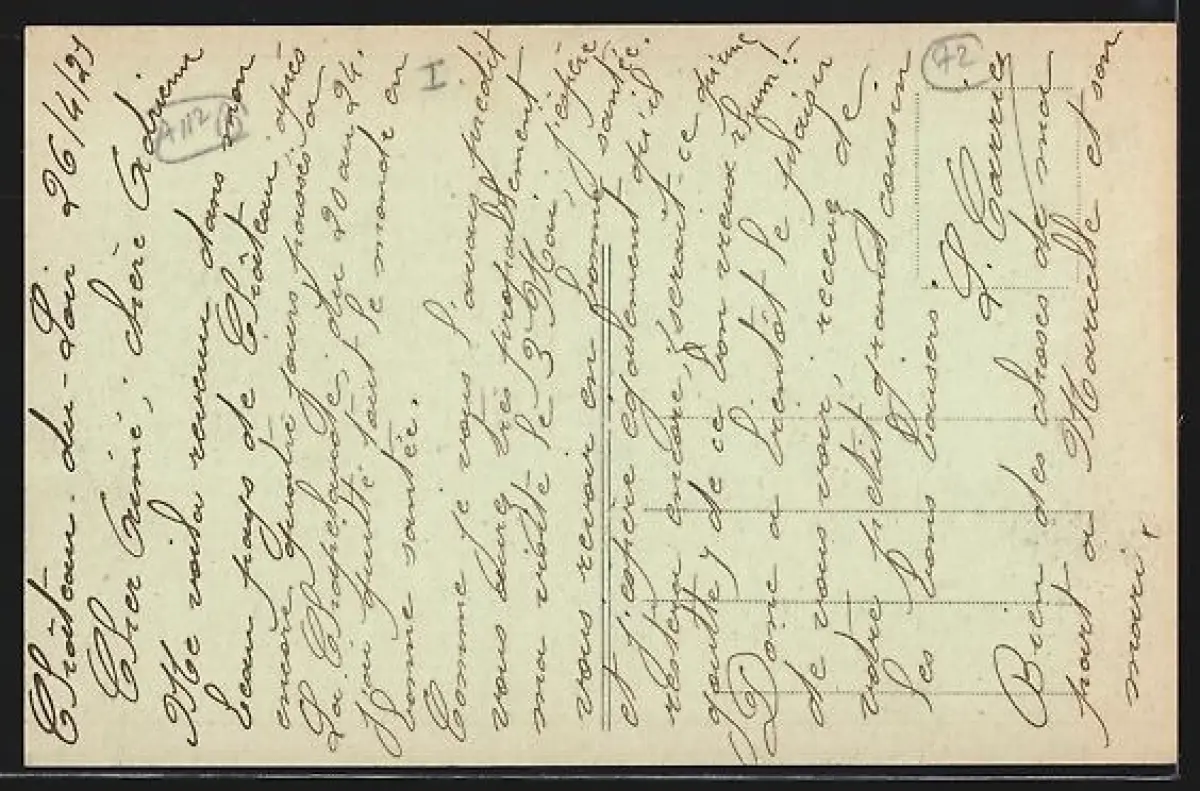 Château-du-Loir 26/4/25
Cher Aimé, chère Adrienne
Me voila revenu dans mon
beau pays de Château, après
encore quatre jours passés à
La Chapelaude, du 20 au 24.
J'ai quitté tout le monde en
bonne santé.
Comme je vous l'avais prédit
vous aurez très probablement
ma visite le 3 Mai, j'espère
vous revoir en bonne santé
et j'espère également qu'il
restera encore, serait-ce qu'une
goutte, de ce bon vieux rhum!
Donc à bientôt le plaisir
de vous voir, recevez de
votre petit grand cousin
les bons baisers.
L. Carré
Bien des choses de ma
part à Marcelle et son
mari.
A112
I
72